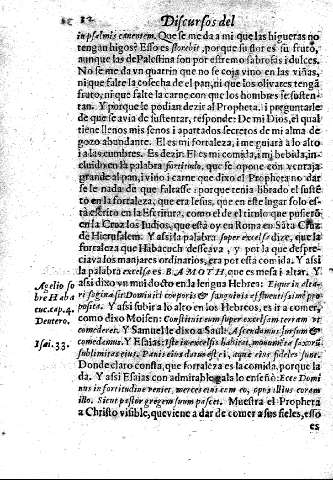 12 Discursos del
in psalmis canentem. Que se me da a mi que las higueras no
tengan higos? Esso es florebit, porque su flor es su fruto,
aunque las de Palestina son por estremo sabrosas i dulces.
No se me da vn quatrin que no se coja vino en las viñas,
ni que falte la cosecha de el pan, ni que los olivares tengã
fruto; ni que falte la carne con que los hombres se susten-
tan. Y porque le podian dezir al Propheta, i preguntarle
de que se avia de sustentar, responde: De mi Dios, el qual
tiene llenos mis senos i apartados secretos de mi alma de
gozo abundante. El es mi fortaleza, i me guiarà a lo alto
i a las cumbres. Es dezir: El es mi comida, i mi bebida, in-
cluidos en la palabra fortitudo, que se opone con ventaja
grande al pan, i vino i carne que dixo el Propheta no dar
se le nada de que faltasse: porque tenia librado el susté-
to en la fortaleza, que era Iesus, que en este lugar solo es-
tà escrito en la Escritura, como el de el titulo que pusierõ
en la Croz los Iudios, que està oy en Roma en Sãta Cruz
de Hierusalem. Y assi la palabra super excelsa dize, que la
fortaleza que Habacuch desseava, y por la que despre-
ciava los manjares ordinarios, era por esta comida. Y assi
la palabra excelsa es BAMOTH, que es mesa i altar. Y
assi dixo vn mui docto en la lengua Hebrea:
Agelio so
bre Haba
cuc. cap. 4.
Deutero.
posita. Y assi subir a lo alto en los Hebreos, es ir a comer,
como dixo Moisen: Constituit eum super excelsam terram vt
comederet. Y Samuel le dixo a Saul: Ascendamus sursum &
comedamus. Y Esaias: Iste in excelsis habitet, monumeta saxorũ
Isai. 33.
sublimitas eius. Panis eius datus est ei, aquæ eius fideles sunt.
Donde claro consta, que fortaleza es la comida, porque la
da. Y assi Esaias con admirable gala lo enseñò: Ecce Domi
nus in fortitudine veniet, merces eius cum eo, opus illius coram
illo. Sicut pastor gregem suum pascet. Muestra el Propheta
a Christo visible, que viene a dar de comer a sus fieles, esso
es